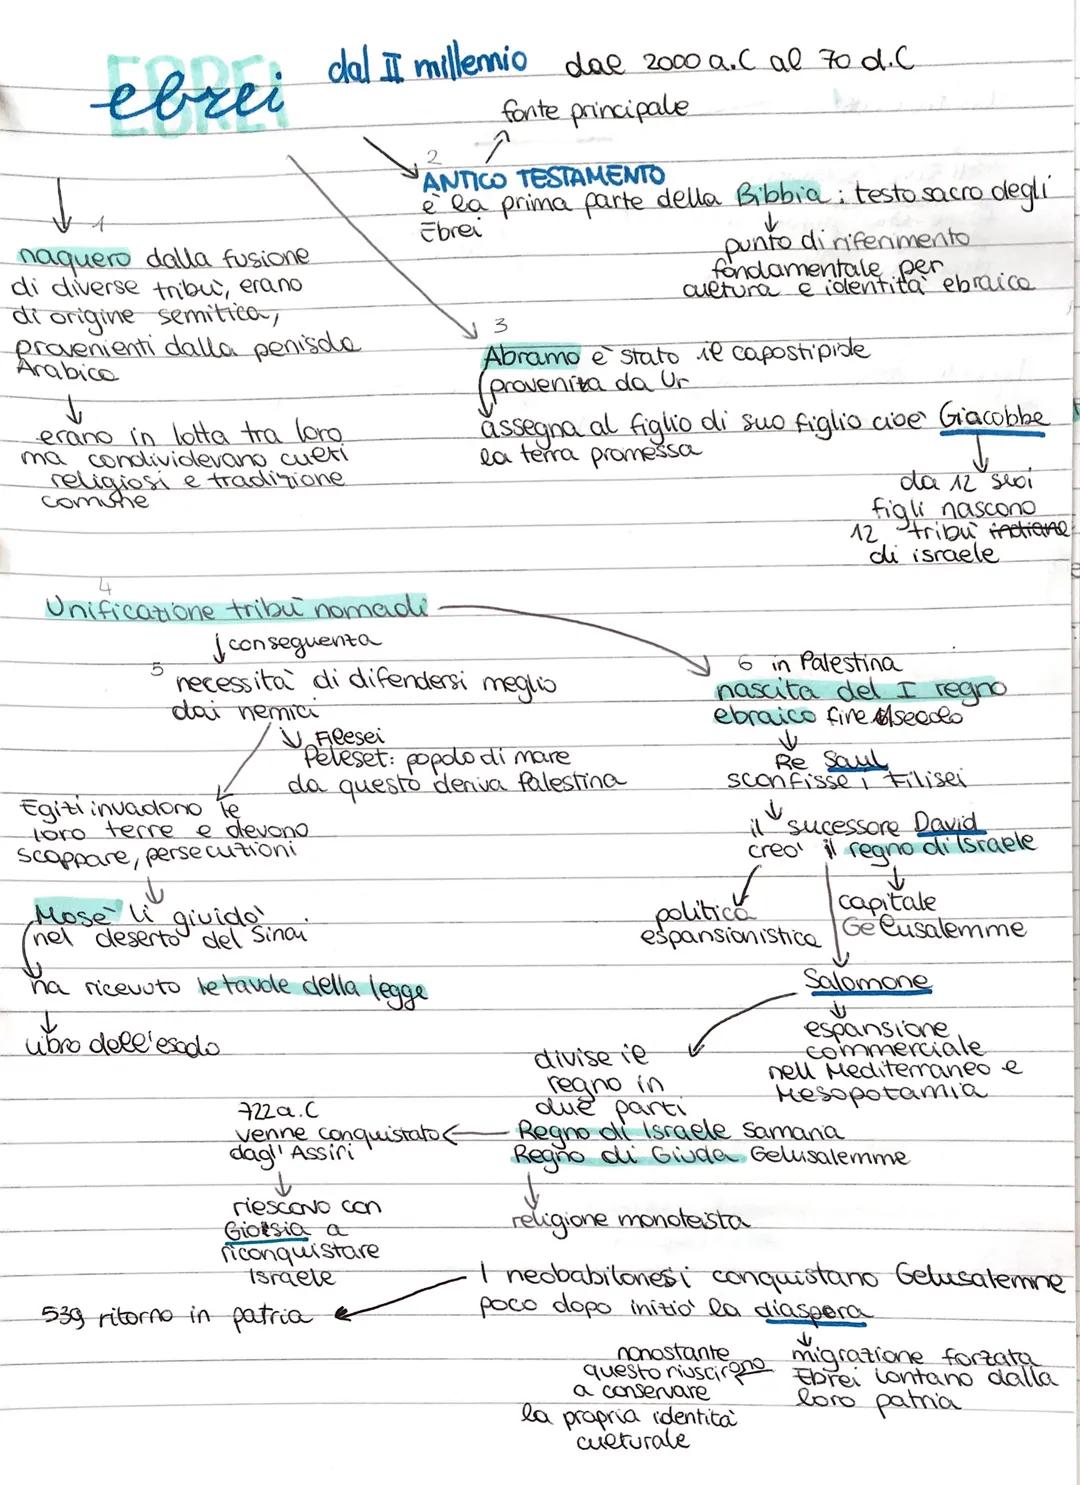 EBREI
ebrei
dal II millennio dal 2000 a.C al 70 d.C
fonte principale
2
ANTICO TESTAMENTO
è la prima parte della Bibbia; testo sacro degli
Ebrei
punto di riferimento
fondamentale per
cultura e identità ebraica
1
naquero dalla fusione
di diverse tribù, erano
di origine semitica,
provenienti dalla penisola
Arabica
erano in lotta tra loro
ma condividevano culti
religiosi e tradizione
comune
3
Abramo è stato il capostipide
provenita da Ur
assegna al figlio di suo figlio cioè Giacobbe
la terra promessa
da 12 suoi
figli nascono
12 tribù indiane
di israele
4
Unificazione tribù nomadi
conseguenza
5 necessità di difendersi meglio
dai nemici
Filesei
Peleset: popolo di mare
da questo deriva Palestina
Egizi invadono le
loro terre e devono
scappare, persecuzioni
Mosè li giuidò
nel deserto del Sinai
ha ricevuto le tavole della legge
libro dell'esodo
6 in Palestina
nascita del I regno
ebraico fine secolo
Re Saul
sconfisse i Filisei
il sucessore David
creò il regno di Israele
politica
espansionistica
capitale
Gelusalemme
Salomone
espansione
commerciale
nell Mediterraneo e
Mesopotamia
divise il
regno in
due parti
Regno di Israele Samaria
Regno di Giuda Gelusalemme
722 a.C
venne conquistato
dagl' Assiri
riescono con
Giosia a
riconquistare
Israele
religione monoteista
I neobabilonesi conquistano Gelusalemme
poco dopo iniziò la diaspora
539 ritorno in patria
migrazione forzata
Ebrei lontano dalla
loro patria
nonostante
questo riuscirono
a conservare
la propria identità
culturale